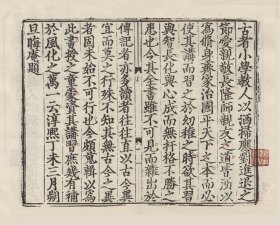 古者小學教人以洒掃應對進退之
節愛親敬長隆師親友之道皆所以
為脩身齊家治國平天下之本而必
使其講而習之於幼穉之時欲其習
與智長化與心成而無扞格不勝之
患也今其全書雖不可見而雜出於
傳記者亦多讀者往往直以古今異
宜而莫之行殊不知其無古今之異
者固未始不可行也今頗蒐輯以為
此書授之童蒙資其講習庶幾有補
於風化之萬一云淳熙丁未三月朔
旦晦庵題